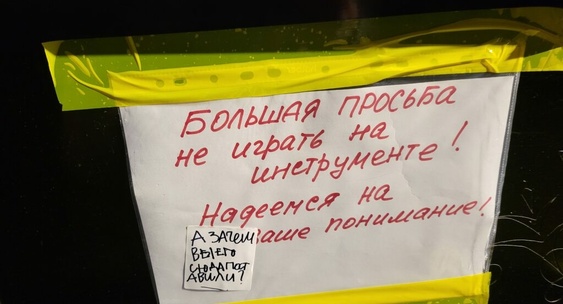 БОЛЬШАЯ ПРОСЬБА
не играть на
инструменте!
Надеемся на
ваше понимание!
А ЗАЧЕМ
ВЫ ЕГО
СЮДА ПОСТ
АВИЛИ?